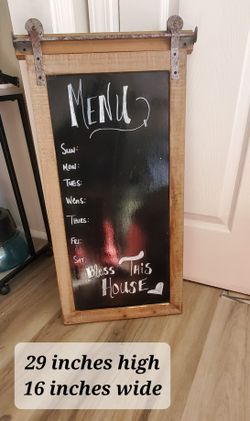 MENU
SUN:
MON:
TUES:
WEDS:
THURS:
FRI:
SAT:
Bless This
House
29 inches high
16 inches wide